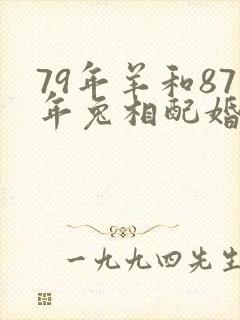 79年羊和87
年兔相配婚
一九九四先生